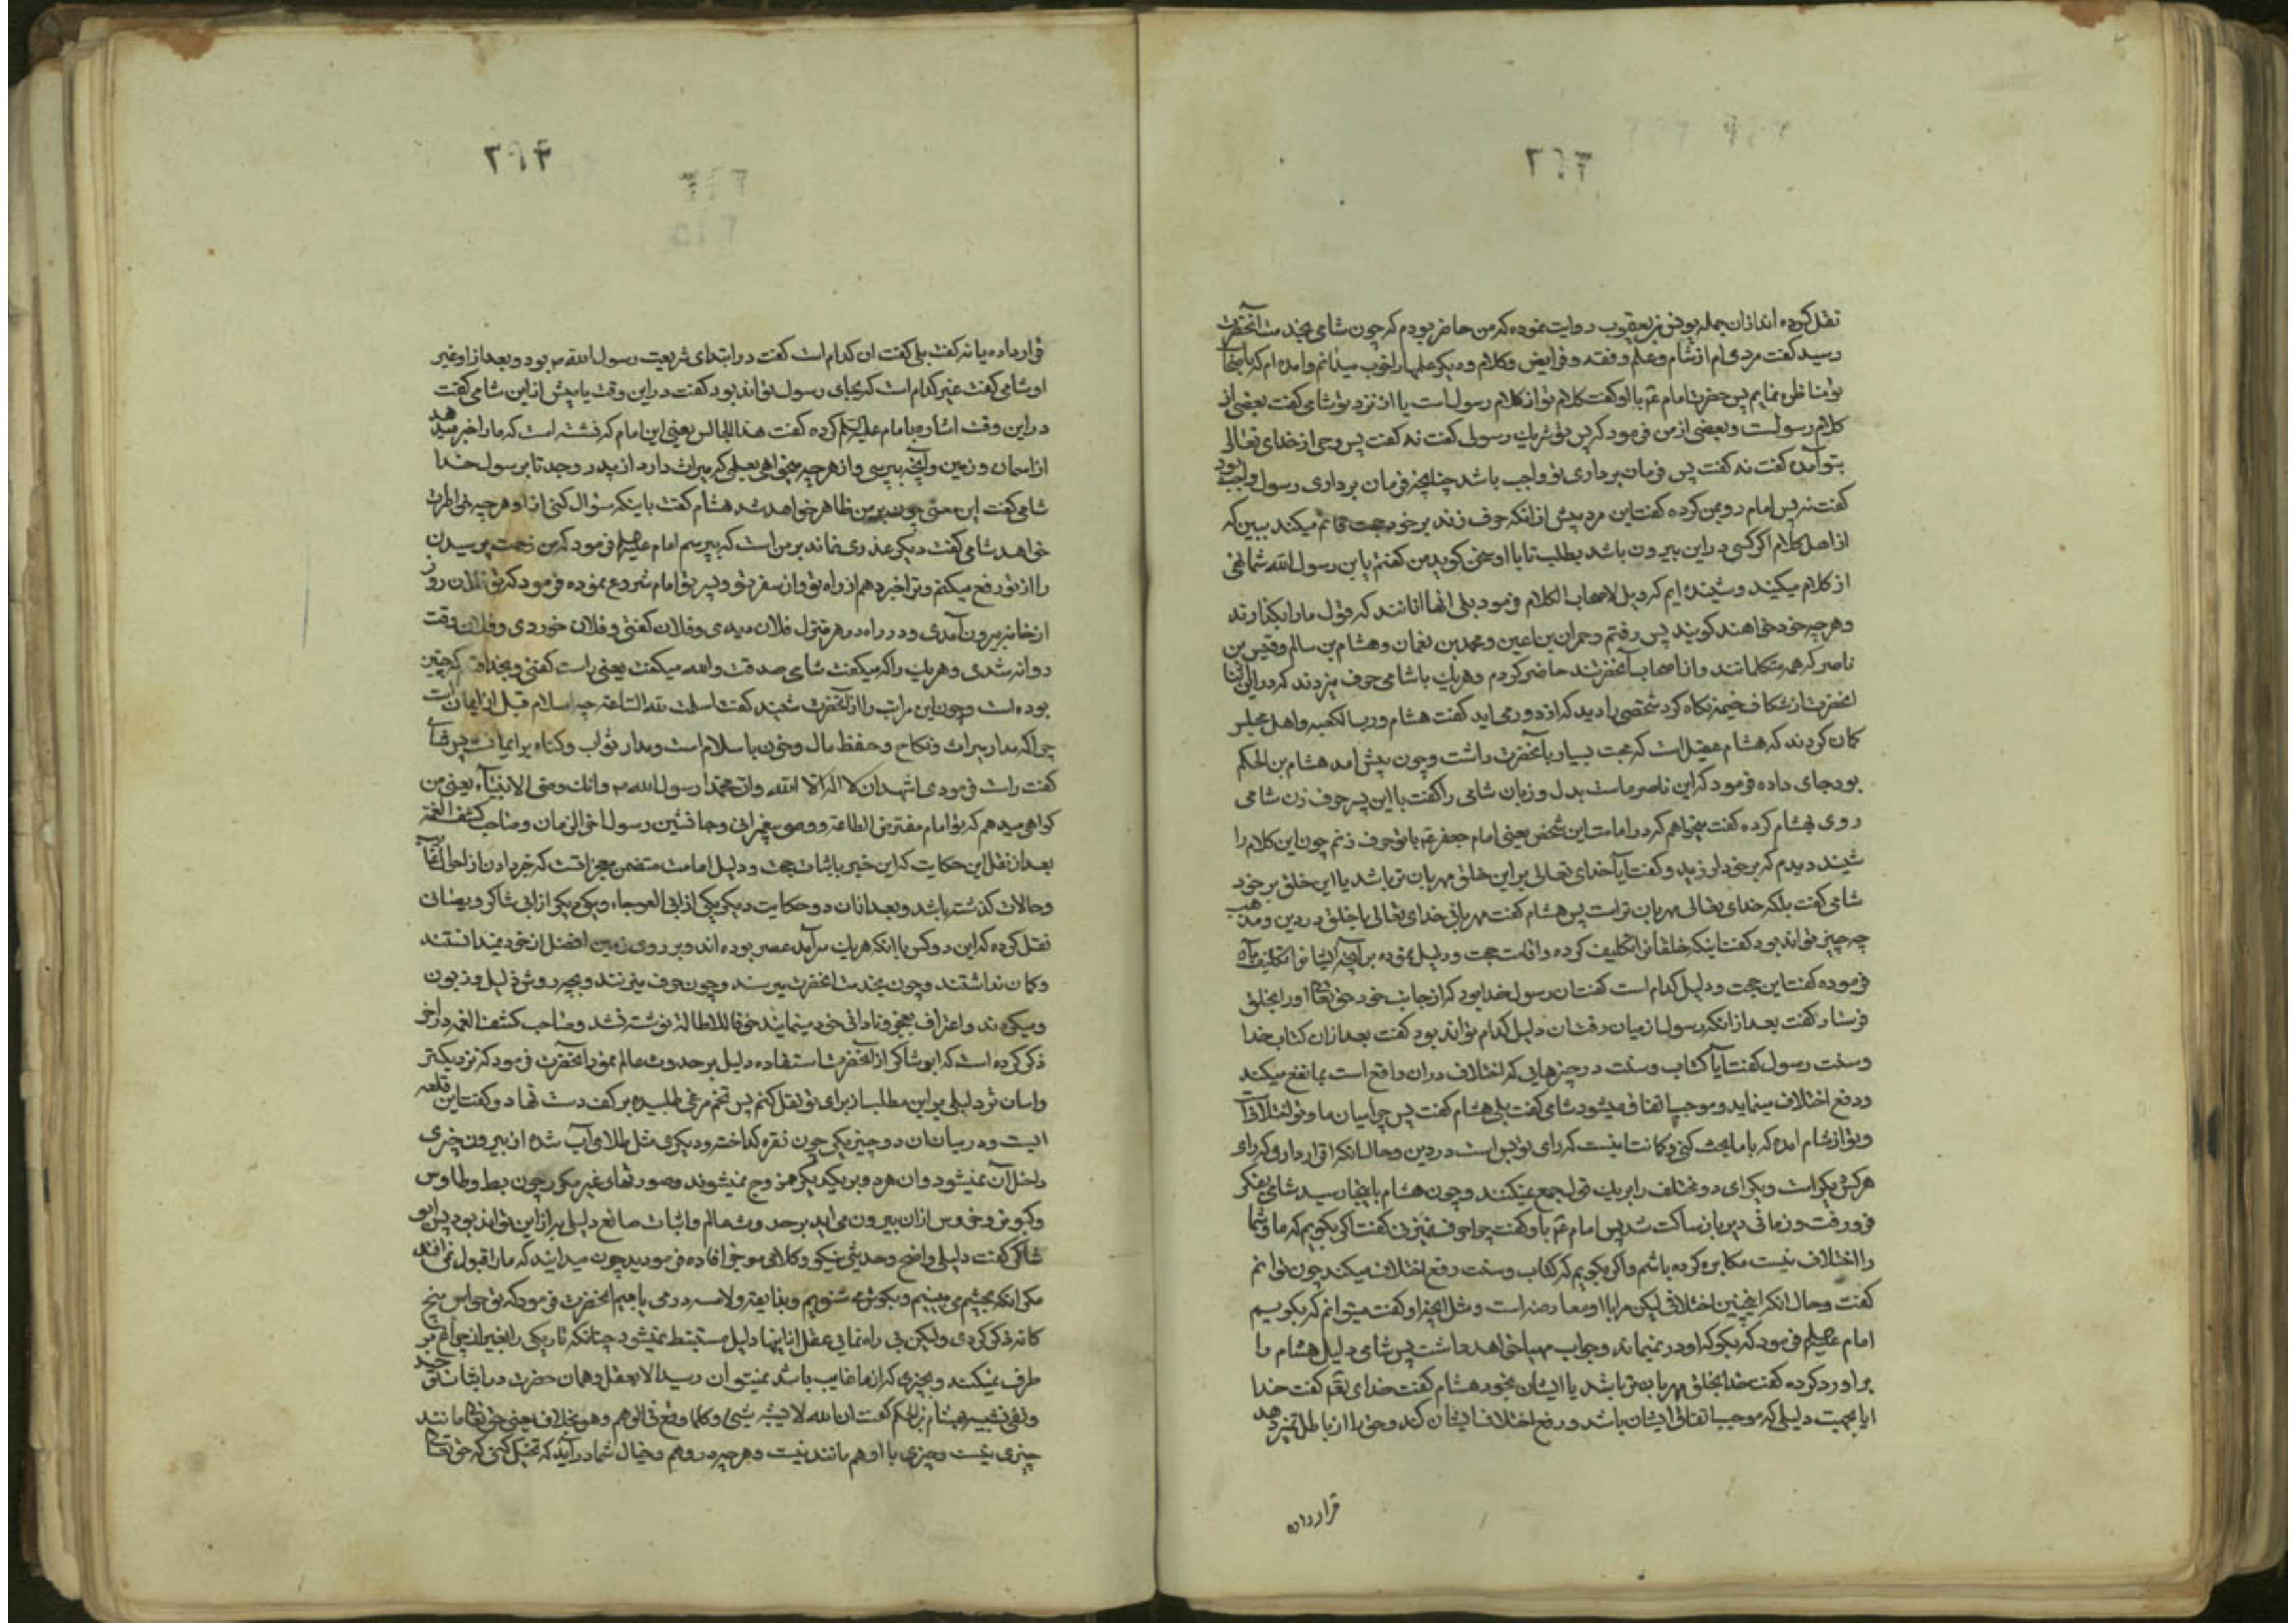 ۲۶۳
نقل کرده اند ازان جمله یونس بن یعقوب روایت نموده که من حاضر بودم که چون شامی بخدمت آنحضرت
رسید گفت مردی ام از شام و علم و فقه و فرایض و کلام و دیگر علمها را خوب میدانم و امده ام که با اصحاب
تو مناظره نمایم پس حضرت امام ع م با او گفت کلام تو از کلام رسول است یا از نزد تو شامی گفت بعضی از
کلام رسولست و بعضی از من فرمود که پس تو شریک رسولی گفت نه گفت پس وحی از خدای تعالی
بتو آمده گفت نه گفت پس فرمان برداری تو واجب باشد چنانچه فرمان برداری رسول واجب بود
گفت نه پس امام رو بمن کرده گفت این مرد پیش از انکه حرف زند بر خود حجت قائم میکند ببین که
از اهل کلام اکر کسی در این بیرون باشد بطلب تا با او سخن کوید من گفتم یا بن رسول الله شما نهی
از کلام میکنید و شنیده ایم که ویل لاصحاب الکلام فرمود بلی انها انانند که قول ما را بکذارند
و هر چه خود خواهند کویند پس رفتم و حمران بن اعین و محمد بن نعمان و هشام بن سالم و قیس بن
ناصر که همه متکلمانند و از اصحاب آنحضرتند حاضر کردم و هر یک با شامی حرف میزدند که در این اثنا
انحضرت از شکاف خیمه نکاه کرد شخصی را دید که از دور می اید گفت هشام و رب الکعبه و اهل مجلس
کمان کردند که هشام عقیل است که محبت بسیار با آنحضرت داشت و چون پیش امد هشام بن الحکم
بود جای داده فرمود که این ناصر ماست بدل و زبان شامی را گفت با این پسر حرف زن شامی
روی بهشام کرده گفت میخواهم که در امامت این شخص یعنی امام جعفر ع م با تو حرف زنم چون این کلام را
شنید دیدم که بر خود لرزید و گفت آیا خدای تعالی بر این خلق مهربان تر باشد یا این خلق بر خود
شامی گفت بلکه خدای تعالی مهربان تر است پس هشام گفت مهربانی خدای تعالی با خلق در دین و مذهب
چه چیز تواند بود گفت اینکه خلقانرا تکلیف کرده و اقامت حجت و دلیل نموده بر آنچه ایشانرا تکلیف بآن
فرموده گفت این حجت و دلیل کدام است گفت ان رسول خدا بود که از جانب خود حق تعالی او را بخلق
فرستاد گفت بعد از انکه رسول از میان رفت ان دلیل کدام تواند بود گفت بعد ازان کتاب خدا
و سنت رسول گفت آیا کتاب و سنت در چیزهایی که اختلاف دران واقع است بما نفع میکند
و دفع اختلاف مینماید و موجب اتفاق میشود شامی گفت بلی هشام گفت پس چرا میان ما و تو اختلافست
و تو از شام امده که با ما بحث کنی و کمانت اینست که رای تو بس است در دین و حال انکه اقرار داری که رای
هر کس دیکر است و یک رای دو مختلف را بر یک قول جمع نمیکنند و چون هشام باینجا رسید شامی بفکر
فرو رفت و زمانی دیر باز ساکت شد پس امام ع م با او گفت چرا حرف نمیزنی گفت اکر بکویم که ما و شما
را اختلاف نیست مکابره کرده باشم و اکر بکویم که کتاب و سنت رفع اختلاف میکند چون توانم
گفت و حال انکه اینچنین اختلافی لیکن مرا با او معارضه است و مثل انچه او گفت میتوانم که بکویم
امام علیه السلم فرمود که بکو که او در نمیماند و جواب مهیا خواهد داشت پس شامی دلیل هشام را
بر او رد کرده گفت خدا بخلق مهربان تر باشد یا ایشان بخود هشام گفت خدای تعم گفت خدا
ایا بجهت دلیلی که موجب اتفاق ایشان باشد و رفع اختلاف ایشان کند و حق را از باطل تمیز دهد
قرار داده
۲۶۴
قرار داده یا نه گفت بلی گفت ان کدام است گفت در ابتدای شریعت رسول الله ص بود و بعد از او غیر
او شامی گفت غیر کدام است که بجای رسول تواند بود گفت در این وقت یا پیش از این شامی گفت
در این وقت اشاره بامام علیه السلم کرده گفت هذا الجالس یعنی این امام که نشسته است که ما را خبر میدهد
از اسمان و زمین و آنچه بپرسی و از هر چه میخواهی بعلمی که میراث دارد از پدر و جد تا برسول خدا
شامی گفت این معنی چون بر من ظاهر خواهد شد هشام گفت باینکه سؤال کنی از او هر چه خواطرت
خواهد شامی گفت دیکر عذری نماند بر من است که بپرسم امام علیه السلم فرمود که من زحمت پرسیدن
را از تو رفع میکنم و ترا خبر دهم از راه تو و از سفر تو و پسر تو امام شروع نموده فرمود که تو فلان روز
از خانه بیرون آمدی و در راه در هر منزل فلان دیدی و فلان گفتی و فلان خوردی و فلان وقت
روانه شدی و هر یک را که میگفت شامی صدقت والله میگفت یعنی راست گفتی و بخدا قسم که چنین
بوده است و چون این مراتب را از آنحضرت شنید گفت اسلمت لله الساعة چه اسلام قبل از ایمان است
چرا که مدار میراث و نکاح و حفظ مال و خون با سلام است و مدار ثواب و کناه بر ایمانست پس شامی
گفت راست فرمودی اشهد ان لا اله الا الله و ان محمدا رسول الله ص و انك وصی الانبیآء یعنی من
کواهی میدهم که تو امام مفترض الطاعة و وصی پیغمبرانی و جانشین رسول اخر الزمان و صاحب کشف الغمه
بعد از نقل این حکایت که این خبر با اثبات حجت و دلیل امامت متضمن معجزاتست که خبر دادن از احوال غایب
و حالات کذشته باشد و بعد ازان دو حکایت دیکر یکی از ابی العوجاء و یکی دیکر از ابی شاکر دیصانی
نقل کرده که این دو کس با انکه هر یک سرآمد عصر بوده اند و بر روی زمین افضل از خود نمیدانستند
و کمان نداشتند و چون بخدمت انحضرت میرسند و چون حرف میزنند و بچه روش ذلیل و زبون
میکردند و اعتراف بعجز و نادانی خود مینمایند خوفا للاطاله نوشته نشد و صاحب کشف الغمه در اخر
ذکر کرده است که ابو شاکر از آنحضرت استفاده دلیل بر حدوث عالم نمود آنحضرت فرمود که نزدیکتر
و اسان تر دلیلی بر این مطلب از برای تو نقل کنم پس تخم مرغی طلبیده بر کف دست نهاد و گفت این قلعه
ایست و در میان ان دو چیز یکی چون نقره کداخته و دیکری مثل طلای آب شده از بیرون چیزی
داخل آن نمیشود و ان هر دو بر یکدیکر ممزوج نمیشوند و صورتهای غیر مکرر چون بط و طاوس
و کبوتر و خروس ازان بیرون می اید بر حدوث عالم و اثبات صانع دلیلی به از این تواند بود پس ابو
شاکر گفت دلیلی واضح و حدیثی نیکو و کلامی موجز افاده فرمودید چون میدانید که ما را قبول نمی افتد
مکر انکه بچشم می بینیم و بکوش می شنویم و بذایقه و لامسه در می یابیم انحضرت فرمود که تو حواس پنج
کانه ذکر کردی ولیکن بی راه نمایی عقل از اینها دلیل مستنبط نمیشود چنانکه تاریکی را بغیر از چراغ بر
طرف نمیکند و بچیزی که از ما غایب باشد نمیتوان رسید الا بعقل و همان حضرت در اثبات توحید
و نفی تشبیه بهشام بن الحکم گفت ان الله لا یشبه شئ و کلما وقع فی الوهم فهو بخلافه یعنی حق تعالی مانند
چیزی نیست و چیزی با او هم مانند نیست و هر چه در وهم و خیال شما در آید که تخیل کنی که حق تعالی